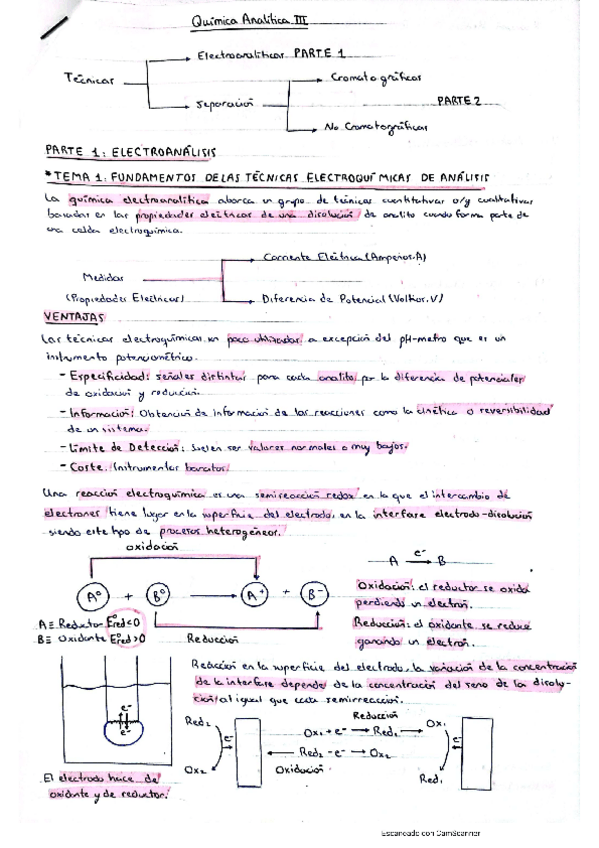 Química Analítica III
Electroanalíticas PARTE 1
Técnicas
Cromatográficas
Separación
PARTE 2
No Cromatográficas
PARTE 1: ELECTROANÁLISIS
*TEMA 1: FUNDAMENTOS DE LAS TÉCNICAS ELECTROQUÍMICAS DE ANÁLISIS
La química electroanalítica abarca un grupo de técnicas cuantitativas o/y cualitativas
basadas en las propiedades eléctricas de una disolución de analito cuando forma parte de
una celda electroquímica.
Corriente Eléctrica (Amperios.A)
Medidas
(Propiedades Eléctricas)
Diferencia de Potencial (Voltios.V)
VENTAJAS
Las técnicas electroquímicas son poco utilizadas, a excepción del pH-metro que es un
instrumento potenciométrico.
- Especificidad: señales distintas para cada analito por la diferencia de potenciales
de oxidación y reducción.
- Información: Obtención de información de las reacciones como la cinética o reversibilidad
de un sistema.
- Límite de Detección: suelen ser valores normales o muy bajos.
- Coste: Instrumentos baratos.
Una reacción electroquímica es una semireacción redox en la que el intercambio de
electrones tiene lugar en la superficie del electrodo, en la interfase electrodo-disolución
siendo este tipo de procesos heterogéneos.
oxidación
A e⁻ B
A⁰ + B⁰ A⁺ + B⁻
Oxidación: el reductor se oxida
perdiendo un electrón.
A ≡ Reductor E⁰red<0
B ≡ Oxidante E⁰red>0
Reducción
Reducción: el oxidante se reduce
ganando un electrón.
Reacción en la superficie del electrodo. la variación de la concentración
de la interfase depende de la concentración del seno de la disolu-
ción al igual que cada semirreacción.
e⁻
e⁻
Red₂
e⁻
Ox₂
Reducción
Ox₁ + e⁻ Red₁
Red₂ - e⁻ Ox₂
Oxidación
Ox₁
e⁻
Red₁
El electrodo hace de
oxidante y de reductor.
Escaneado con CamScanner